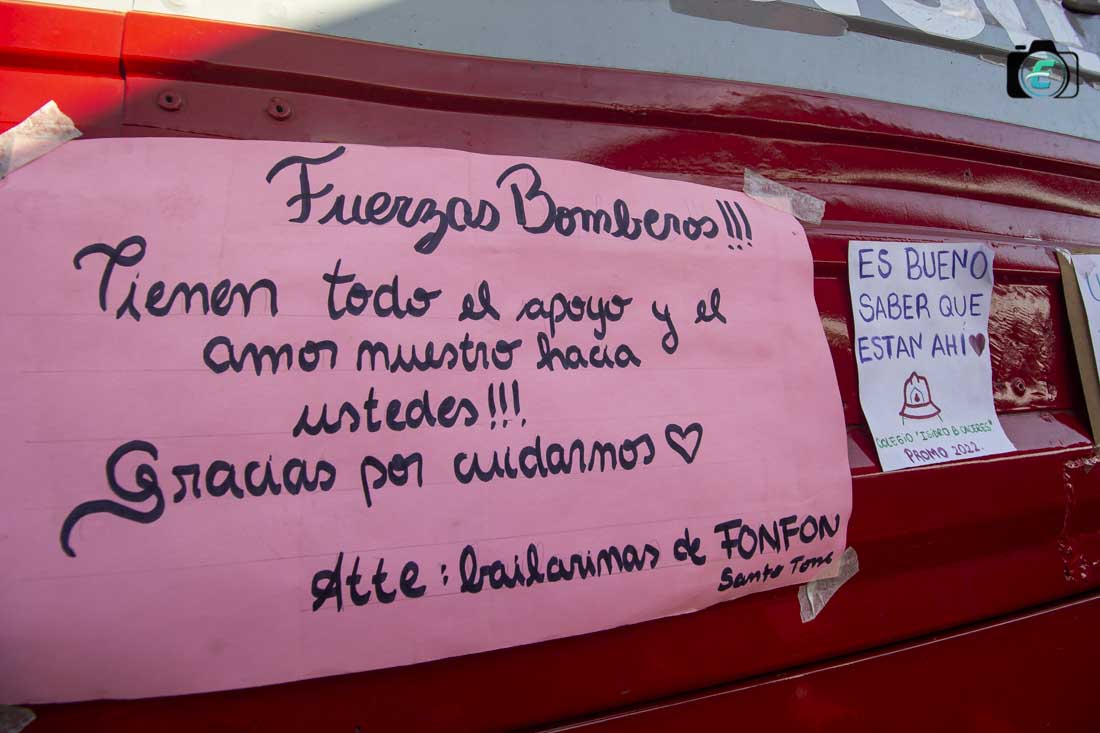 Fuerzas Bomberos!!!
Tienen todo el apoyo y el
amor nuestro hacia
ustedes!!!
Gracias por cuidarnos
Atte: bailarinas de FONFON
Santo Tomé
ES BUENO
SABER QUE
ESTAN AHÍ
COLEGIO "ISIDRO B CACERES"
PROMO 2022.